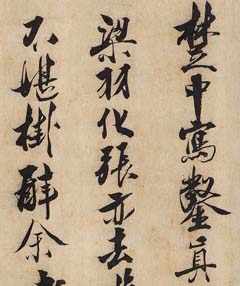 楚中寫鑿真
梁羽化張亦去
不堪掛醉余